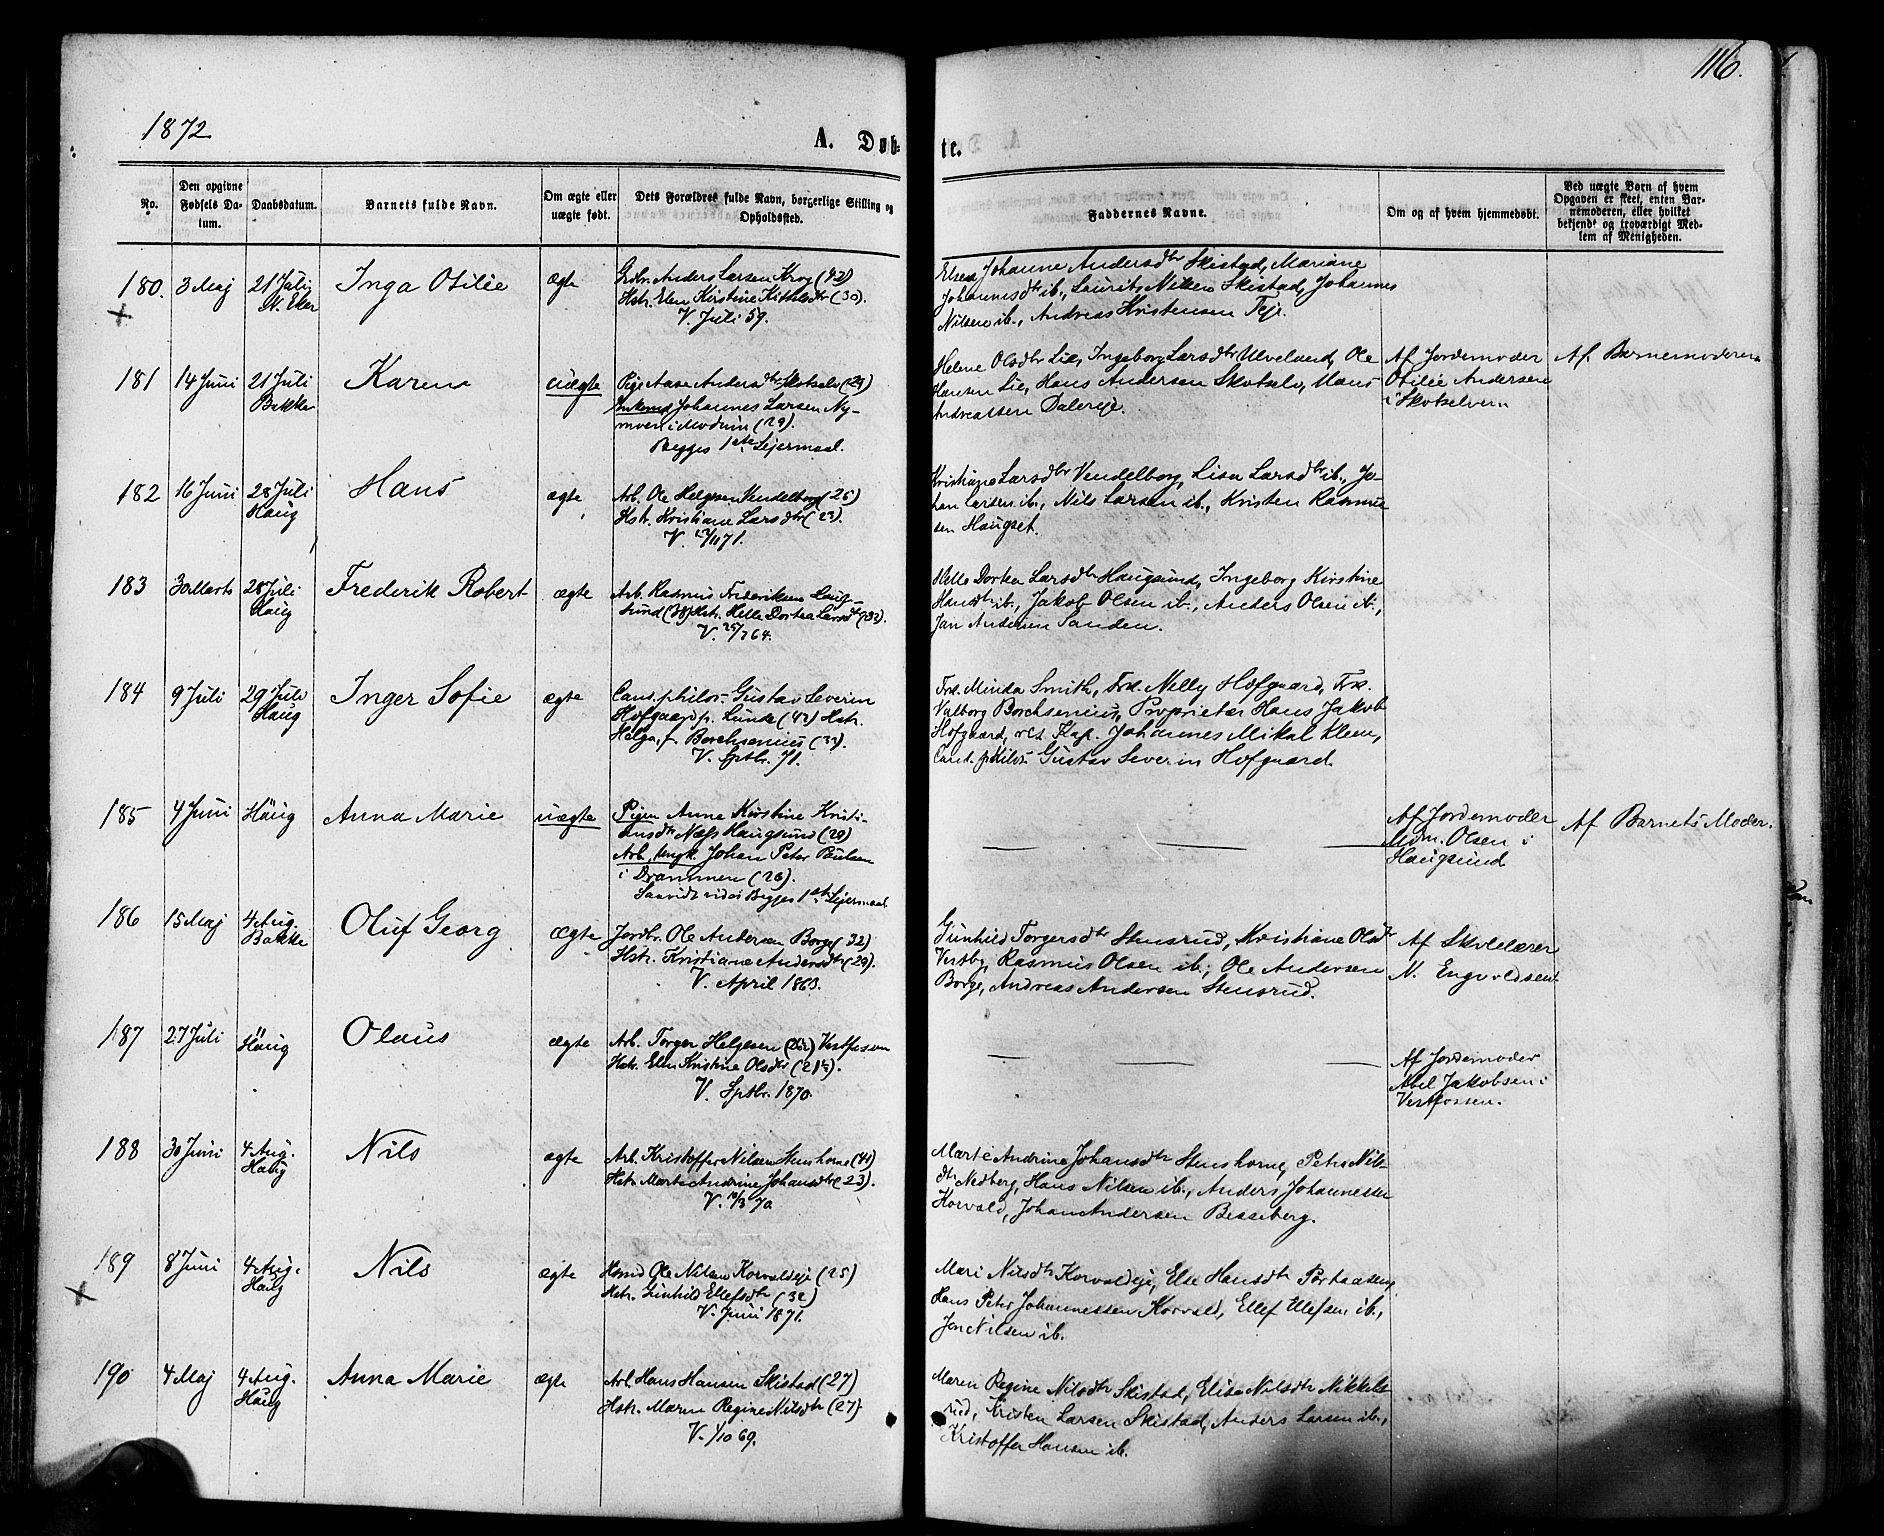 116.
1872
A. Døbte.
No.
Den opgivne Fødsels Datum.
Daabsdatum.
Barnets fulde Navn.
Om ægte eller uægte født.
Dets Forældres fulde Navn, borgerlige Stilling og Opholdssted.
Faddernes Navne.
Om og af hvem hjemmedøbt.
Ved uægte Børn af hvem Opgaven er skeet, enten Barnemoderen, eller hvilket bekjendt og troværdigt Medlem af Menigheden.
180. 3 Maj 21 Juli Inga Otilie ægte
N. Eker
Anders Larsen Krog (42)
Hstr. Elen Kirstine (30).
V. Juli 59.
Johanne Andersdtr Skistad, Mariane
Johannesdtr ib., Laurits Nilsen Skistad, Johannes
Nilsen ib., Andreas Kristensen
181 14 Juni 21 Juli Karen uægte
Bakke
Pige Aase Andersdtr Skotselv (29)
Ungkmd Johannes Larsen Ny-
moen i Modum (29).
Begges 1ste Lejermaal.
Helene Olsdtr Lie, Ingeborg Larsdtr Ulveland, Ole
Hansen Lie, Hans Andersen Skotselv, Hans
Andreassen Dalereje.
Af Jordemoder
Otilie Andersen
i Skotselven
Af Barnemoderen
182 16 Juni 28 Juli Hans ægte
Haug
Arb. Ole Helgesen Vendelborg (25)
Hstr. Kristiane Larsdtr (23).
V. /11 71.
Kristiane Larsdtr Vendelborg, Lisa Larsdtr ib., Jo-
han Larsen ib., Nils Larsen ib., Kristen Rasmus-
sen Haugset.
183 30 Marts 28 Juli Frederik Robert ægte
Haug
Arb. Rasmus Frederiksen Haug-
sund (38) Hstr. Helle Dortea Larsdtr (32).
V. 25/7 64.
Helle Dortea Larsdtr Haugsund, Ingeborg Kirstine
Hansdtr ib., Jakob Olsen ib., Anders Olsen ib.,
Jan Andersen Sanden.
184 9 Juli 29 Juli Inger Sofie ægte
Haug
Cand. philos. Gustav Severin
Hofgaard p. Lunde (42) Hstr.
Helga, f. Borchsenius (33).
V. Sptbr. 71.
Frk. Minda Smith, Frk. Nelly Hofgaard, Frk.
Valborg Borchsenius, Proprietær Hans Jakob
Hofgaard, res. Kap. Johannes Mikal Klem,
Cand. philos. Gustav Severin Hofgaard.
185 4 Juni Haug Anna Marie uægte
Pigen Anne Kirstine Kristi-
ansdtr Næss Haugsund (29)
Arb., Ungk. Johan Peter Paulsen
i Drammen (26).
Saavidt vides Begges 1ste Lejermaal
Af Jordemoder
Olsen i
Haugsund
Af Barnets Moder.
186 15 Maj 4 Aug. Oluf Georg ægte
Bakke
Jordbr. Ole Andersen Borge (32)
Hstr. Kristiane Andersdtr (29).
V. April 1863.
Gunhild Torgersdtr Stensrud, Kristiane Olsdtr
Vestby, Rasmus Olsen ib., Ole Andersen
Borge, Andreas Andersen Stensrud.
Af Skolelærer
N. Engvoldsen
187 27 Juli Haug Olaus ægte
Arb. Torger Helgesen Vestfossen
Hstr. Elen Kristine Olsdtr
V. Sptbr. 1870.
Af Jordemoder
Abel Jakobsen i
Vestfossen.
188 30 Juni 4 Aug. Nils ægte
Haug
Arb. Kristoffer Nilsen Stenshorne (41)
Hstr. Marte Andrine Johansdtr (23).
V. /3 70
Marte Andrine Johansdtr Stenshorne, Petra Nils-
dtr Nedberg, Hans Nilsen ib., Anders Johannessen
Korvald, Johan Andersen Besseberg.
189 8 Juni 4 Aug. Nils ægte
Haug
Hsmd Ole Nilsen Korvaldeje (25)
Hstr. Gunhild Ellefsdtr (32)
V. Juni 1871.
Mari Nilsdtr Korvaldeje, Else Hansdtr Portaasen,
Hans Peter Johannessen Korvald, Ellef Ellefsen ib.,
Jon Nilsen ib.
190 4 Maj 4 Aug. Anna Marie ægte
Haug
Arb. Hans Hansen Skistad (27)
Hstr. Maren Regine Nilsdtr (27)
V. 1/10 69.
Maren Regine Nilsdtr Skistad, Elise Nilsdtr Nikkels-
rud, Kristen Larsen Skistad, Anders Larsen ib.,
Kristoffer Hansen ib.